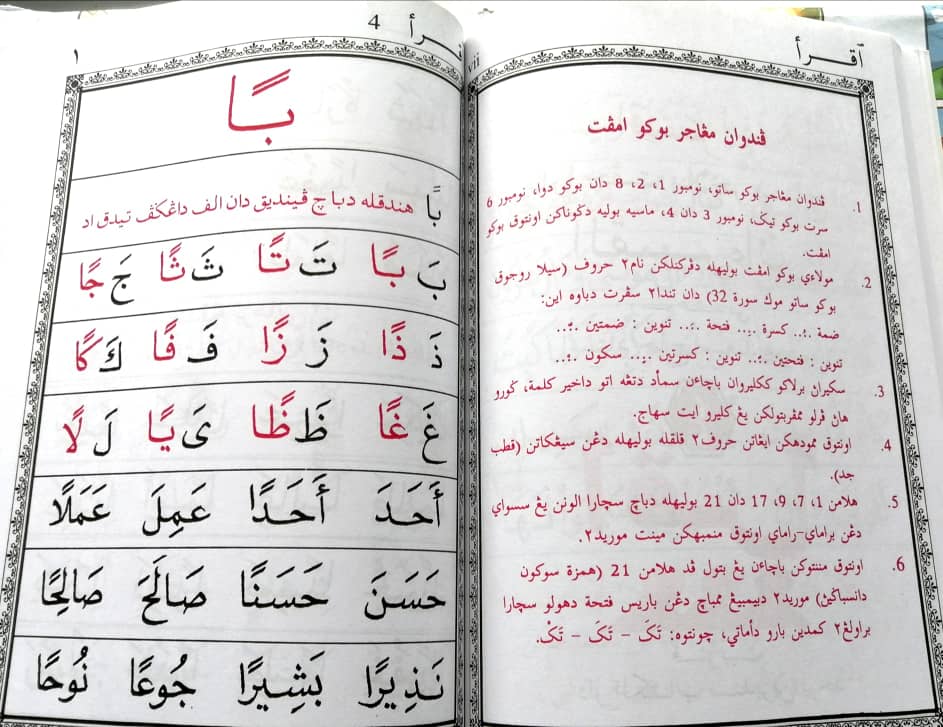 ٱقــرأ
vii
ڤندوان مڠاجر بوكو امڤت
1. ڤندوان مڠاجر بوكو ساتو، نومبور 1، 2، 8 دان بوكو دوا، نومبور 6
سرت بوكو تيݢ، نومبور 3 دان 4، ماسيه بوليه دݢوناكن اونتوق بوكو
امڤت.
2. مولاءي بوكو امڤت بوليهله دڤركنلكن نام٢ حروف (سيلا روجوق
بوكو ساتو موك سورة 32) دان تندا٢ سڤرت دباوه اين:
ضمة .ـُ.. كسرة .ـِ.. فتحة .ـَ.. تنوين : ضمتين .ـٌ..
تنوين : فتحتين .ـً.. تنوين : كسرتين .ـٍ.. سكون .ـْ..
3. سكيران برلاكو ككليروان باچاءن سمأد دتڠه اتو داخير كلمة، ݢورو
هان ڤرلو ممڤربتولكن يڠ كليرو ايت سهاج.
4. اونتوق ممودهكن ايڠاتن حروف٢ قلقله بوليهله دڠن سيڠكاتن (قطب
جد).
5. هلامن 1، 7، 9، 17 دان 21 بوليهله دباچ سچارا الونن يڠ سسواي
دڠن براماي-راماي اونتوق منمبهكن مينت موريد٢.
6. اونتوق مننتوكن باچاءن يڠ بتول ڤد هلامن 21 (همزة سوكون
دانسباݢين) موريد٢ دبيمبيڠ ممباچ دڠن باريس فتحة دهولو سچارا
براولڠ٢ كمدين بارو دأماتي، چونتوه: تَكَ – تَكَ – تَكْ.
ـرأ 4
١
بًا
بًا هندقله دباچ ڤينديق دان الف داڠݢڤ تيدق اد
بَ بًا تَ تًا ثَ ثًا جَ جًا
ذَ ذًا زَ زًا فَ فًا كَ كًا
غَ غًا ظَ ظًا يَ يًا لَ لًا
أَحَدَ أَحَدًا عَمِلَ عَمَلًا
حَسَنَ حَسَنًا صَالَحَ صَالِحًا
نَذِيرًا بَشِيرًا جُوعًا نُوحًا